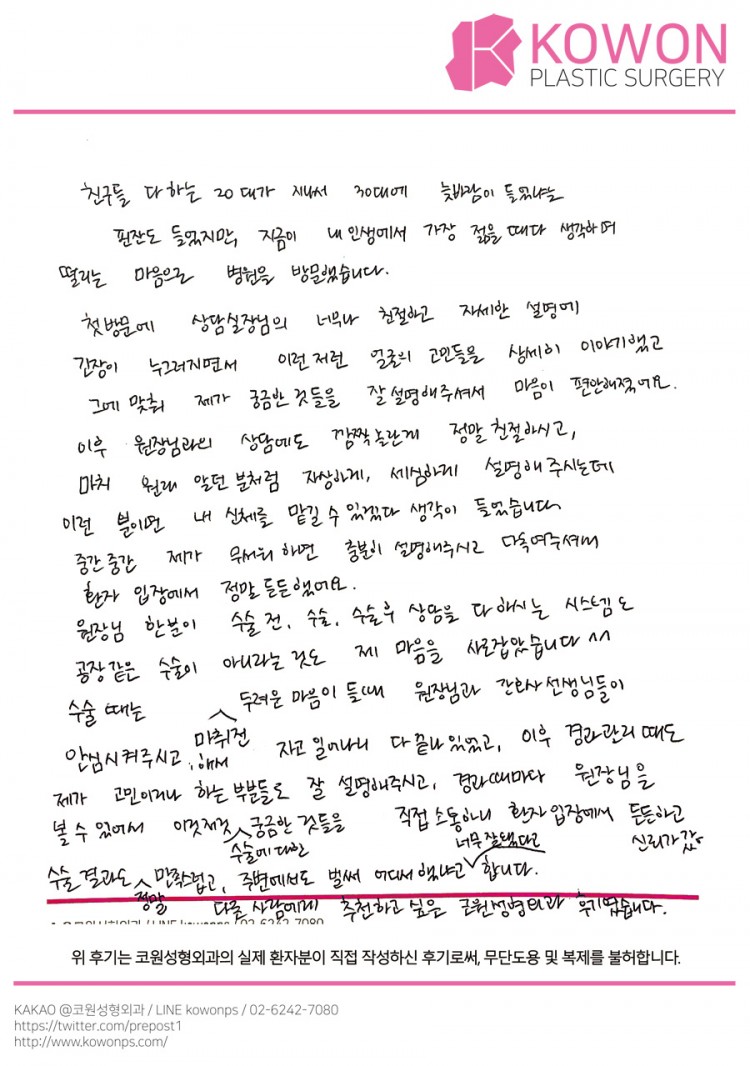 KOWON
PLASTIC SURGERY
친구들 다 하는 20대가 지나서 30대에 늦바람이 들었냐는
핀잔도 들었지만, 지금이 내 인생에서 가장 젊을 때다 생각하며
떨리는 마음으로 병원을 방문했습니다.
첫 방문에 상담실장님의 너무나 친절하고 자세한 설명에
긴장이 누그러지면서 이런저런 얼굴의 고민들을 상세히 이야기했고
그에 맞춰 제가 궁금한 것들을 잘 설명해주셔서 마음이 편안해졌어요.
이후 원장님과의 상담에도 깜짝놀란게 정말 친절하시고,
마치 원래 알던 분처럼 자상하게, 세심하게 설명해 주시는데
이런 분이면 내 신체를 맡길 수 있겠다 생각이 들었습니다
중간중간 제가 무서워 하면 충분히 설명해주시고 다독여주셔서
환자 입장에서 정말 든든했어요.
원장님 한분이 수술 전, 수술, 수술후 상담을 다 하시는 시스템도
공장 같은 수술이 아니라는 것도 제 마음을 사로잡았습니다 ^^
수술 때는 두려운 마음이 들때 원장님과 간호사 선생님들이
안심시켜주시고, 마취전 해서 자고 일어나니 다 끝나있었고, 이후 경과관리 때도
제가 고민이거나 하는 부분들도 잘 설명해주시고, 경과때마다 원장님을
볼 수 있어서 이것저것 수술에 대한 궁금한 것들을 직접 소통하니 환자 입장에서 든든하고 신뢰가 갔
수술 결과도 정말 만족스럽고, 주변에서도 벌써 어디서 했냐고 너무 잘됐다고 합니다.
다른 사람에게 추천하고 싶은 코원성형외과 후기였습니다.
위 후기는 코원성형외과의 실제 환자분이 직접 작성하신 후기로써, 무단도용 및 복제를 불허합니다.
KAKAO @코원성형외과 / LINE kowonps / 02-6242-7080
https://twitter.com/prepost1
http://www.kowonps.com/